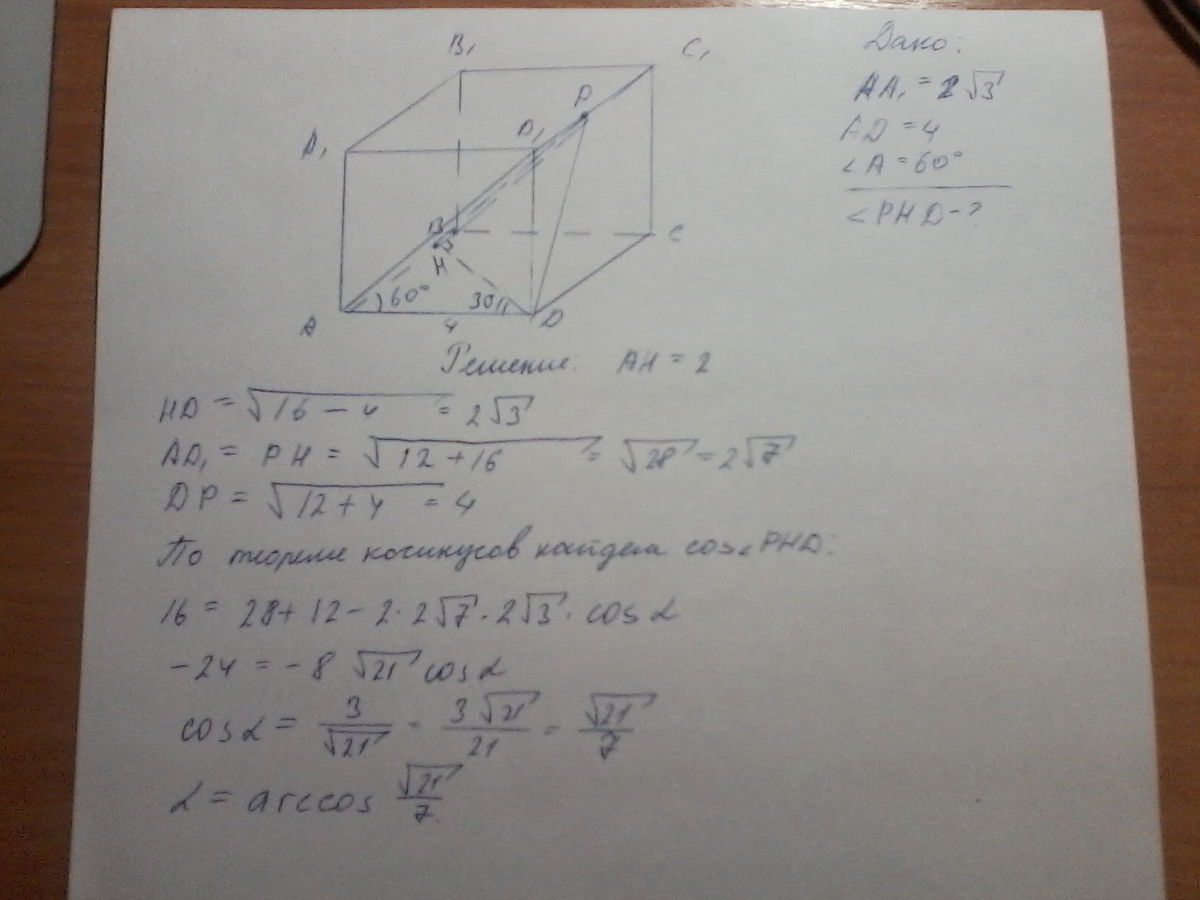 B₁
C₁
P
A₁
D₁
B
C
H
60°
30
A
4
D
Дано:
AA₁ = 2√3
AD = 4
∠A = 60°
∠PHD - ?
Решение: AH = 2
HD = √16 - 4 = 2√3
AD₁ = PH = √12 + 16 = √28 = 2√7
DP = √12 + 4 = 4
По теореме косинусов найдем cos∠PHD:
16 = 28 + 12 - 2·2√7·2√3·cos α
-24 = -8√21 cos α
cos α = 3/√21 = 3√21/21 = √21/7
α = arccos √21/7.